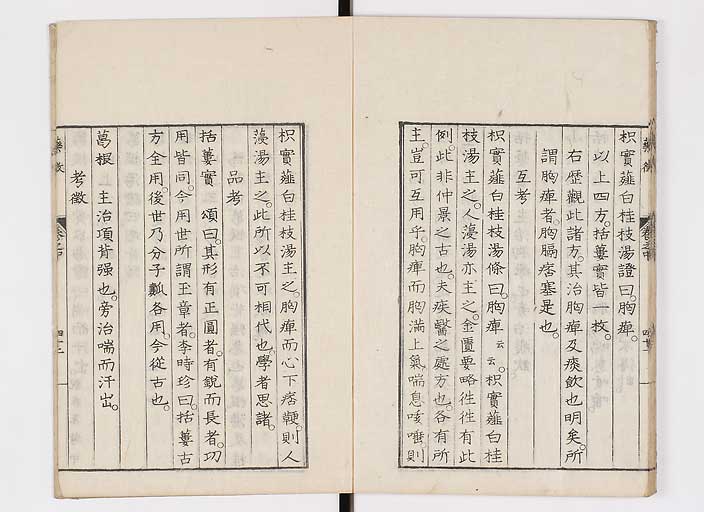 枳實薤白桂枝湯證曰。胸痺。
以上四方。栝蔞實皆一枚。
右歷觀此諸方。其治胸痺及痰飲也明矣。所
謂胸痺者。胸膈痞塞是也。
互考
枳實薤白桂枝湯條曰。胸痺云云。枳實薤白桂
枝湯主之。人蓡湯亦主之。金匱要略徃徃有此
例。此非仲景之古也。夫疾醫之處方也。各有所
主。豈可互用乎。胸痺而胸滿上氣。喘息咳唾。則
枳實薤白桂枝湯主之。胸痺而心下痞鞕。則人
蓡湯主之。此所以不可相代也。學者思諸。
品考
栝蔞實 頌曰。其形有正圓者。有銳而長者。功
用皆同。今用世所謂王章者。李時珍曰。栝蔞古
方全用。後世乃分子瓤各用。今從古也。
葛根 主治項背强也。旁治喘而汗出。
考徵
藥徵
卷之中
四十二
藥徵
卷之中